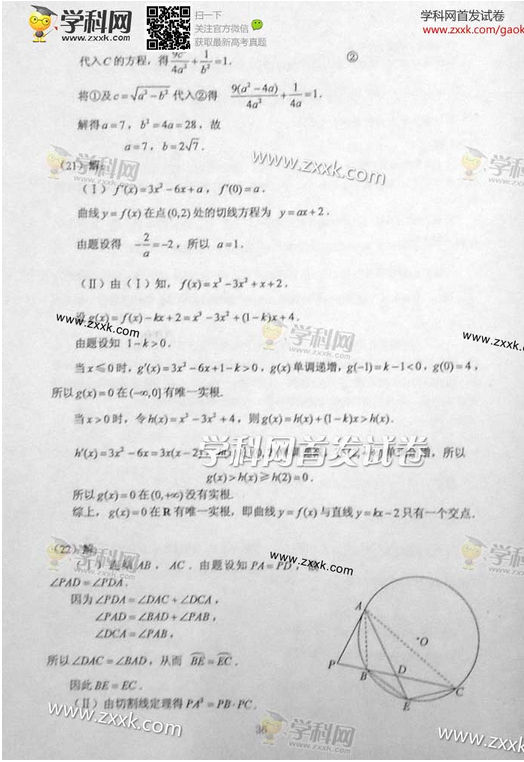 学科网
www.zxxk.com
扫一下
关注官方微信
获取最新高考真题
学科网首发试卷
www.zxxk.com/gaok
代入C的方程，得 9c²/4a² + 1/b² = 1. ②
将①及 c=√(a²-b²) 代入②得 9(a²-4a)/4a² + 1/4a = 1.
解得 a=7，b²=4a=28，故
a=7，b=2√7.
(21) 解：
(Ⅰ) f'(x)=3x²-6x+a，f'(0)=a.
曲线 y=f(x) 在点(0,2)处的切线方程为 y=ax+2.
由题设得 -2/a=-2，所以 a=1.
(Ⅱ) 由(Ⅰ)知，f(x)=x³-3x²+x+2.
设 g(x)=f(x)-kx+2=x³-3x²+(1-k)x+4.
由题设知 1-k>0.
当 x≤0 时，g'(x)=3x²-6x+1-k>0，g(x) 单调递增，g(-1)=k-1<0，g(0)=4，
所以 g(x)=0 在 (-∞,0] 有唯一实根.
当 x>0 时，令 h(x)=x³-3x²+4，则 g(x)=h(x)+(1-k)x>h(x).
h'(x)=3x²-6x=3x(x-2)，所以
g(x)>h(x)≥h(2)=0.
所以 g(x)=0 在 (0,+∞) 没有实根.
综上，g(x)=0 在 R 有唯一实根，即曲线 y=f(x) 与直线 y=kx-2 只有一个交点.
学科网首发试卷
(22) 解：
连结 AB，AC. 由题设知 PA=PD，故
∠PAD=∠PDA.
因为 ∠PDA=∠DAC+∠DCA，
∠PAD=∠BAD+∠PAB，
∠DCA=∠PAB，
所以 ∠DAC=∠BAD，从而 BE=EC.
因此 BE=EC.
(Ⅱ) 由切割线定理得 PA²=PB·PC.
A
O
P
B
D
C
E
36
学科网
www.zxxk.com